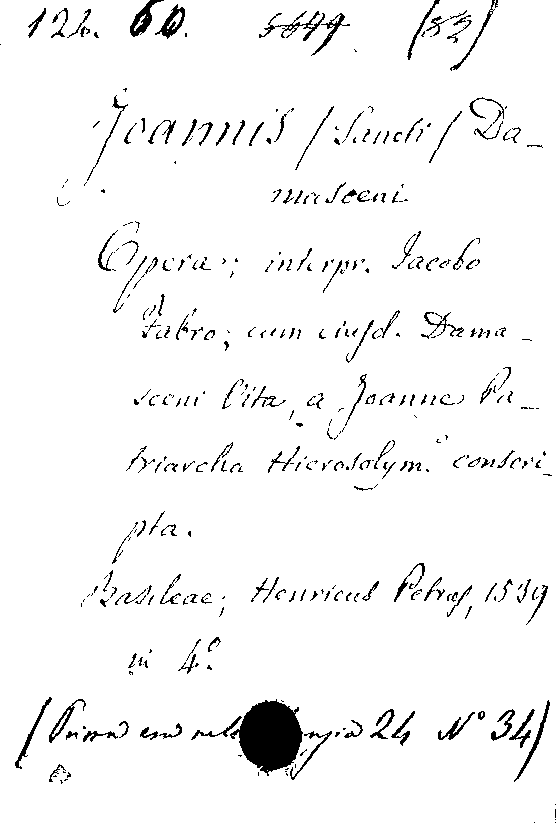 122. 60. 5679 (82)
Joannis / Sancti / Da-
masceni
Opera; interpr. Iacobo
Fabro; cum eiusd. Dama-
sceni Vita, a Joanne Pa-
triarcha Hierosolym.º conscri-
pta.
Basileae; Henricus Petrus, 1539
in 4º.
(Prima era nell 24 Nº 34)